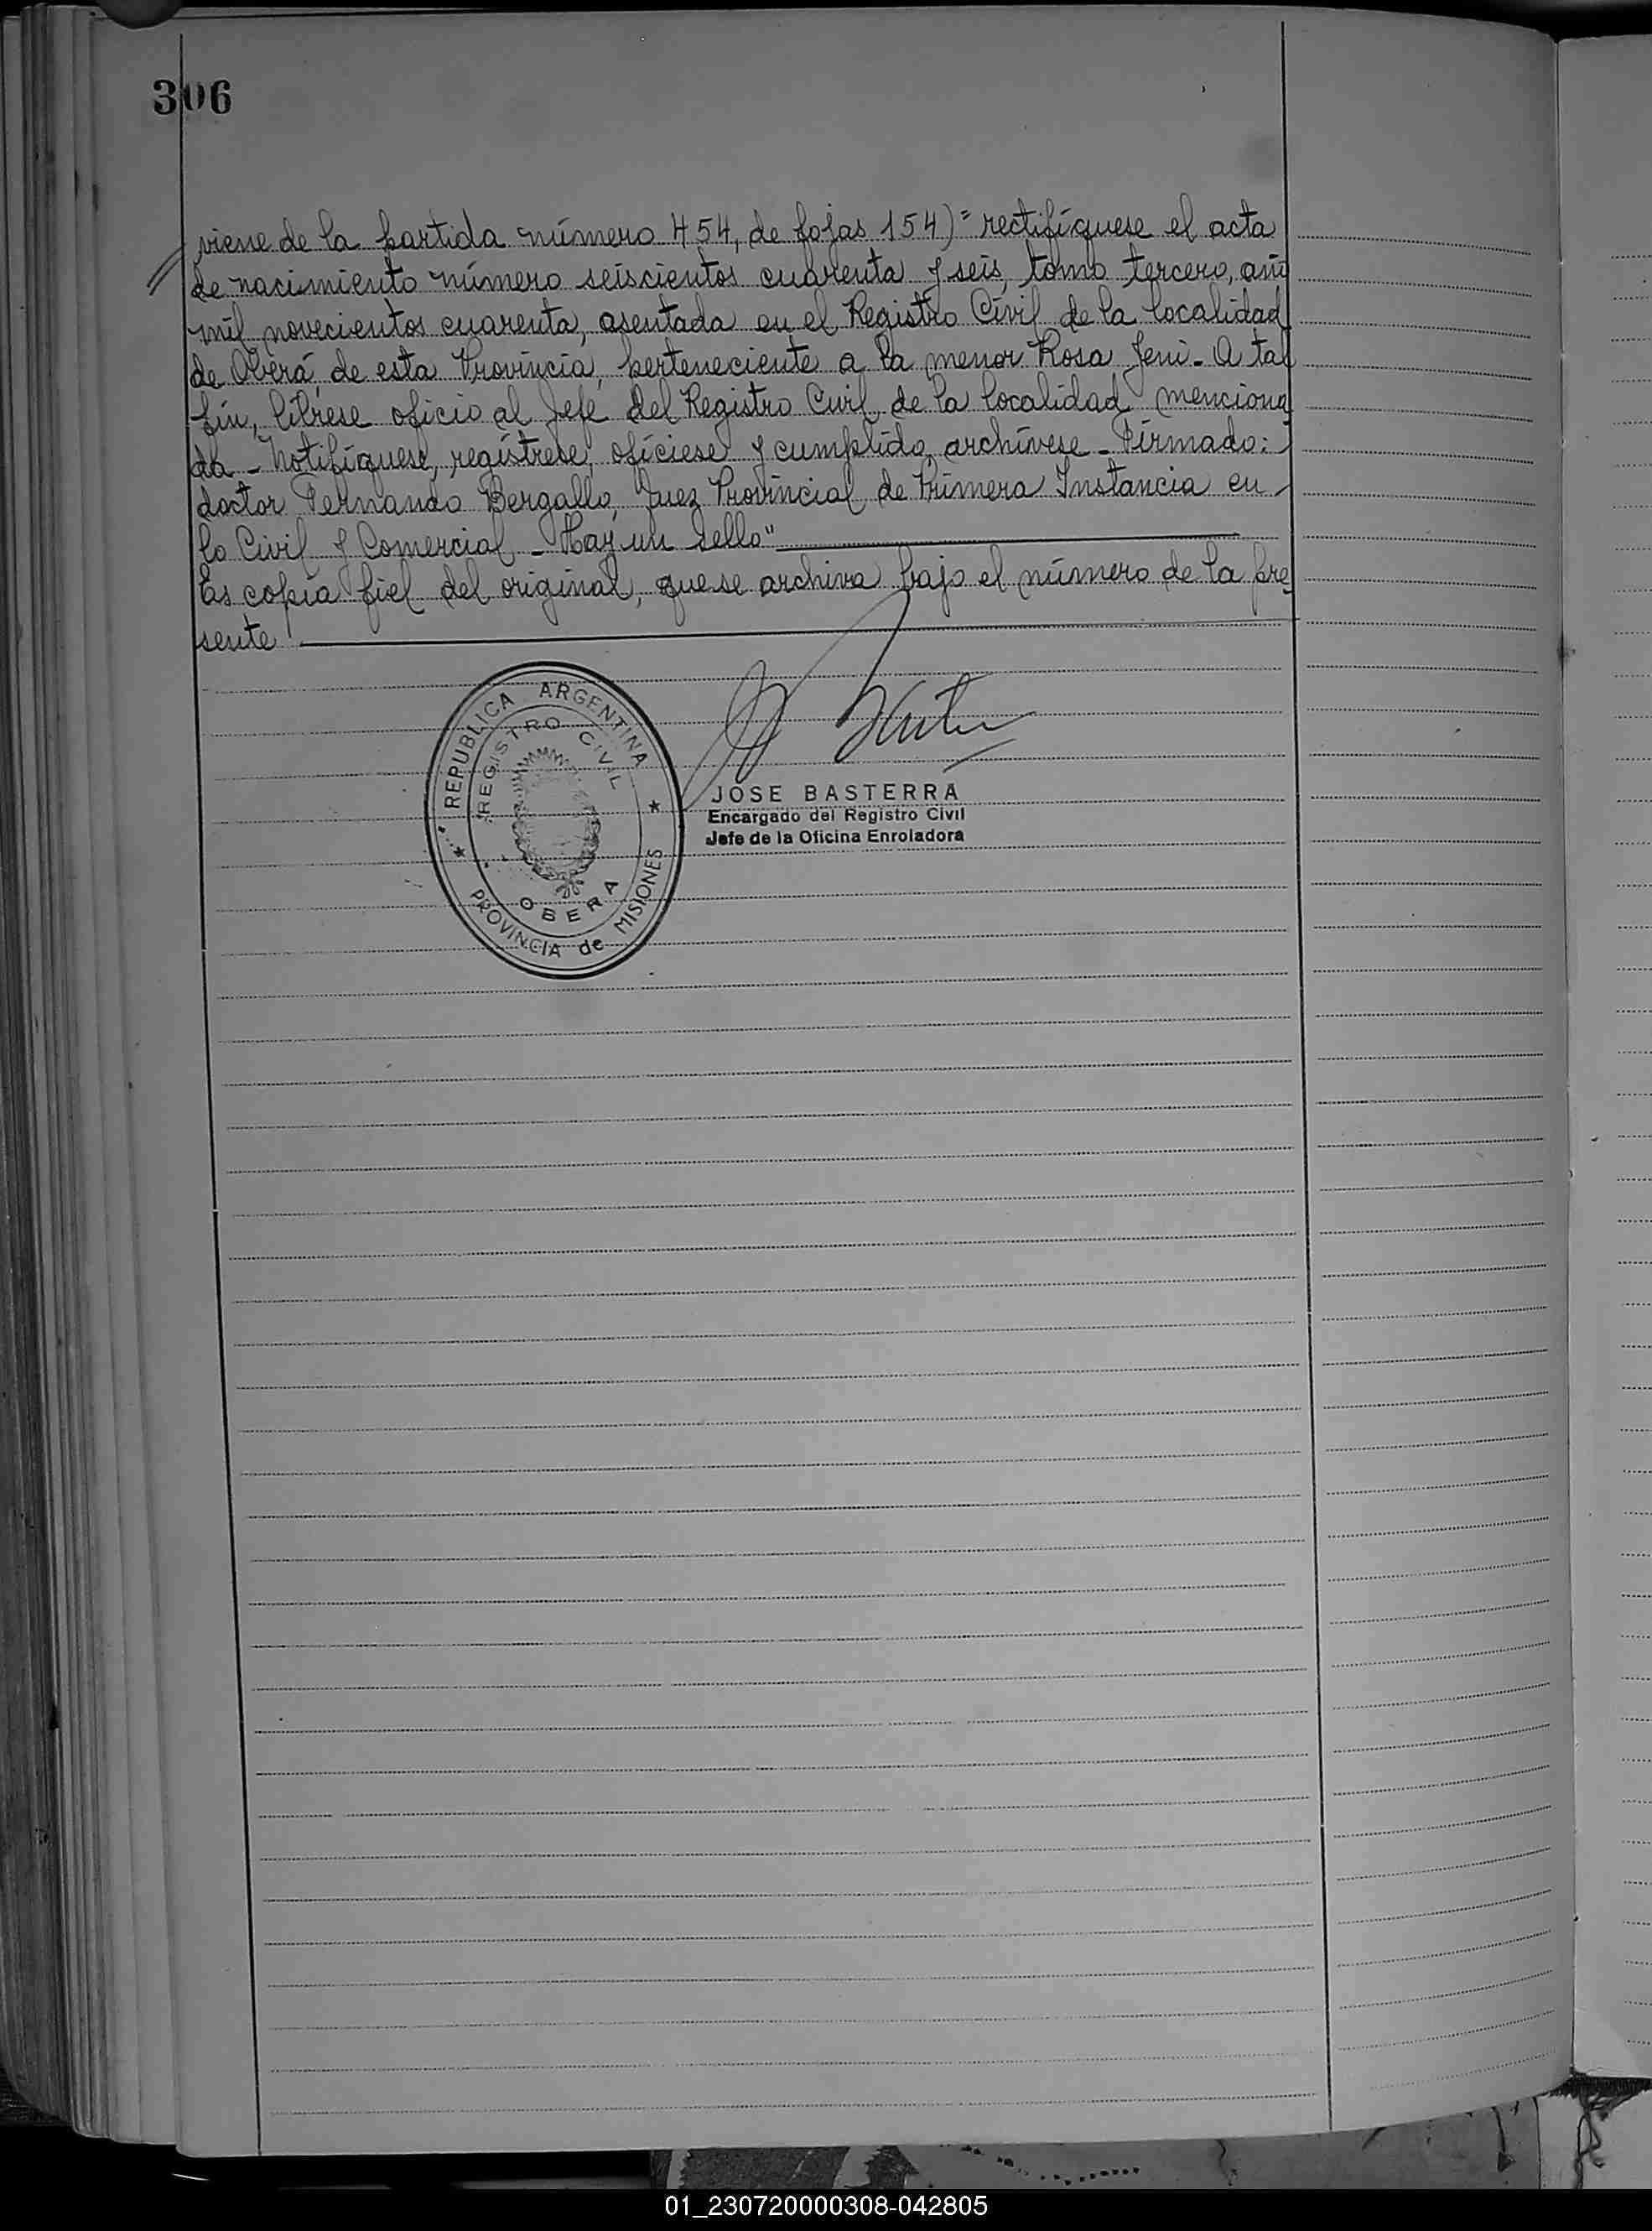 306
viene de la partida número 454, de fojas 154)= rectifíquese el acta
de nacimiento número seiscientos cuarenta y seis, tomo tercero, año
mil novecientos cuarenta, asentada en el Registro Civil de la localidad
de Oberá, de esta Provincia, perteneciente a la menor Rosa Jeni - A tal
fin, líbrese oficio al Jefe del Registro Civil de la localidad menciona
da - Notifíquese, regístrese, ofíciese y cumplido, archívese - Firmado:
doctor Fernando Bergallo, Juez Provincial de Primera Instancia en
lo Civil y Comercial - Hay un sello"
Es copia fiel del original, que se archiva bajo el número de la pre
sente
REPUBLICA ARGENTINA
REGISTRO CIVIL
OBERA
PROVINCIA de MISIONES
JOSE BASTERRA
Encargado del Registro Civil
Jefe de la Oficina Enroladora
01_230720000308-042805